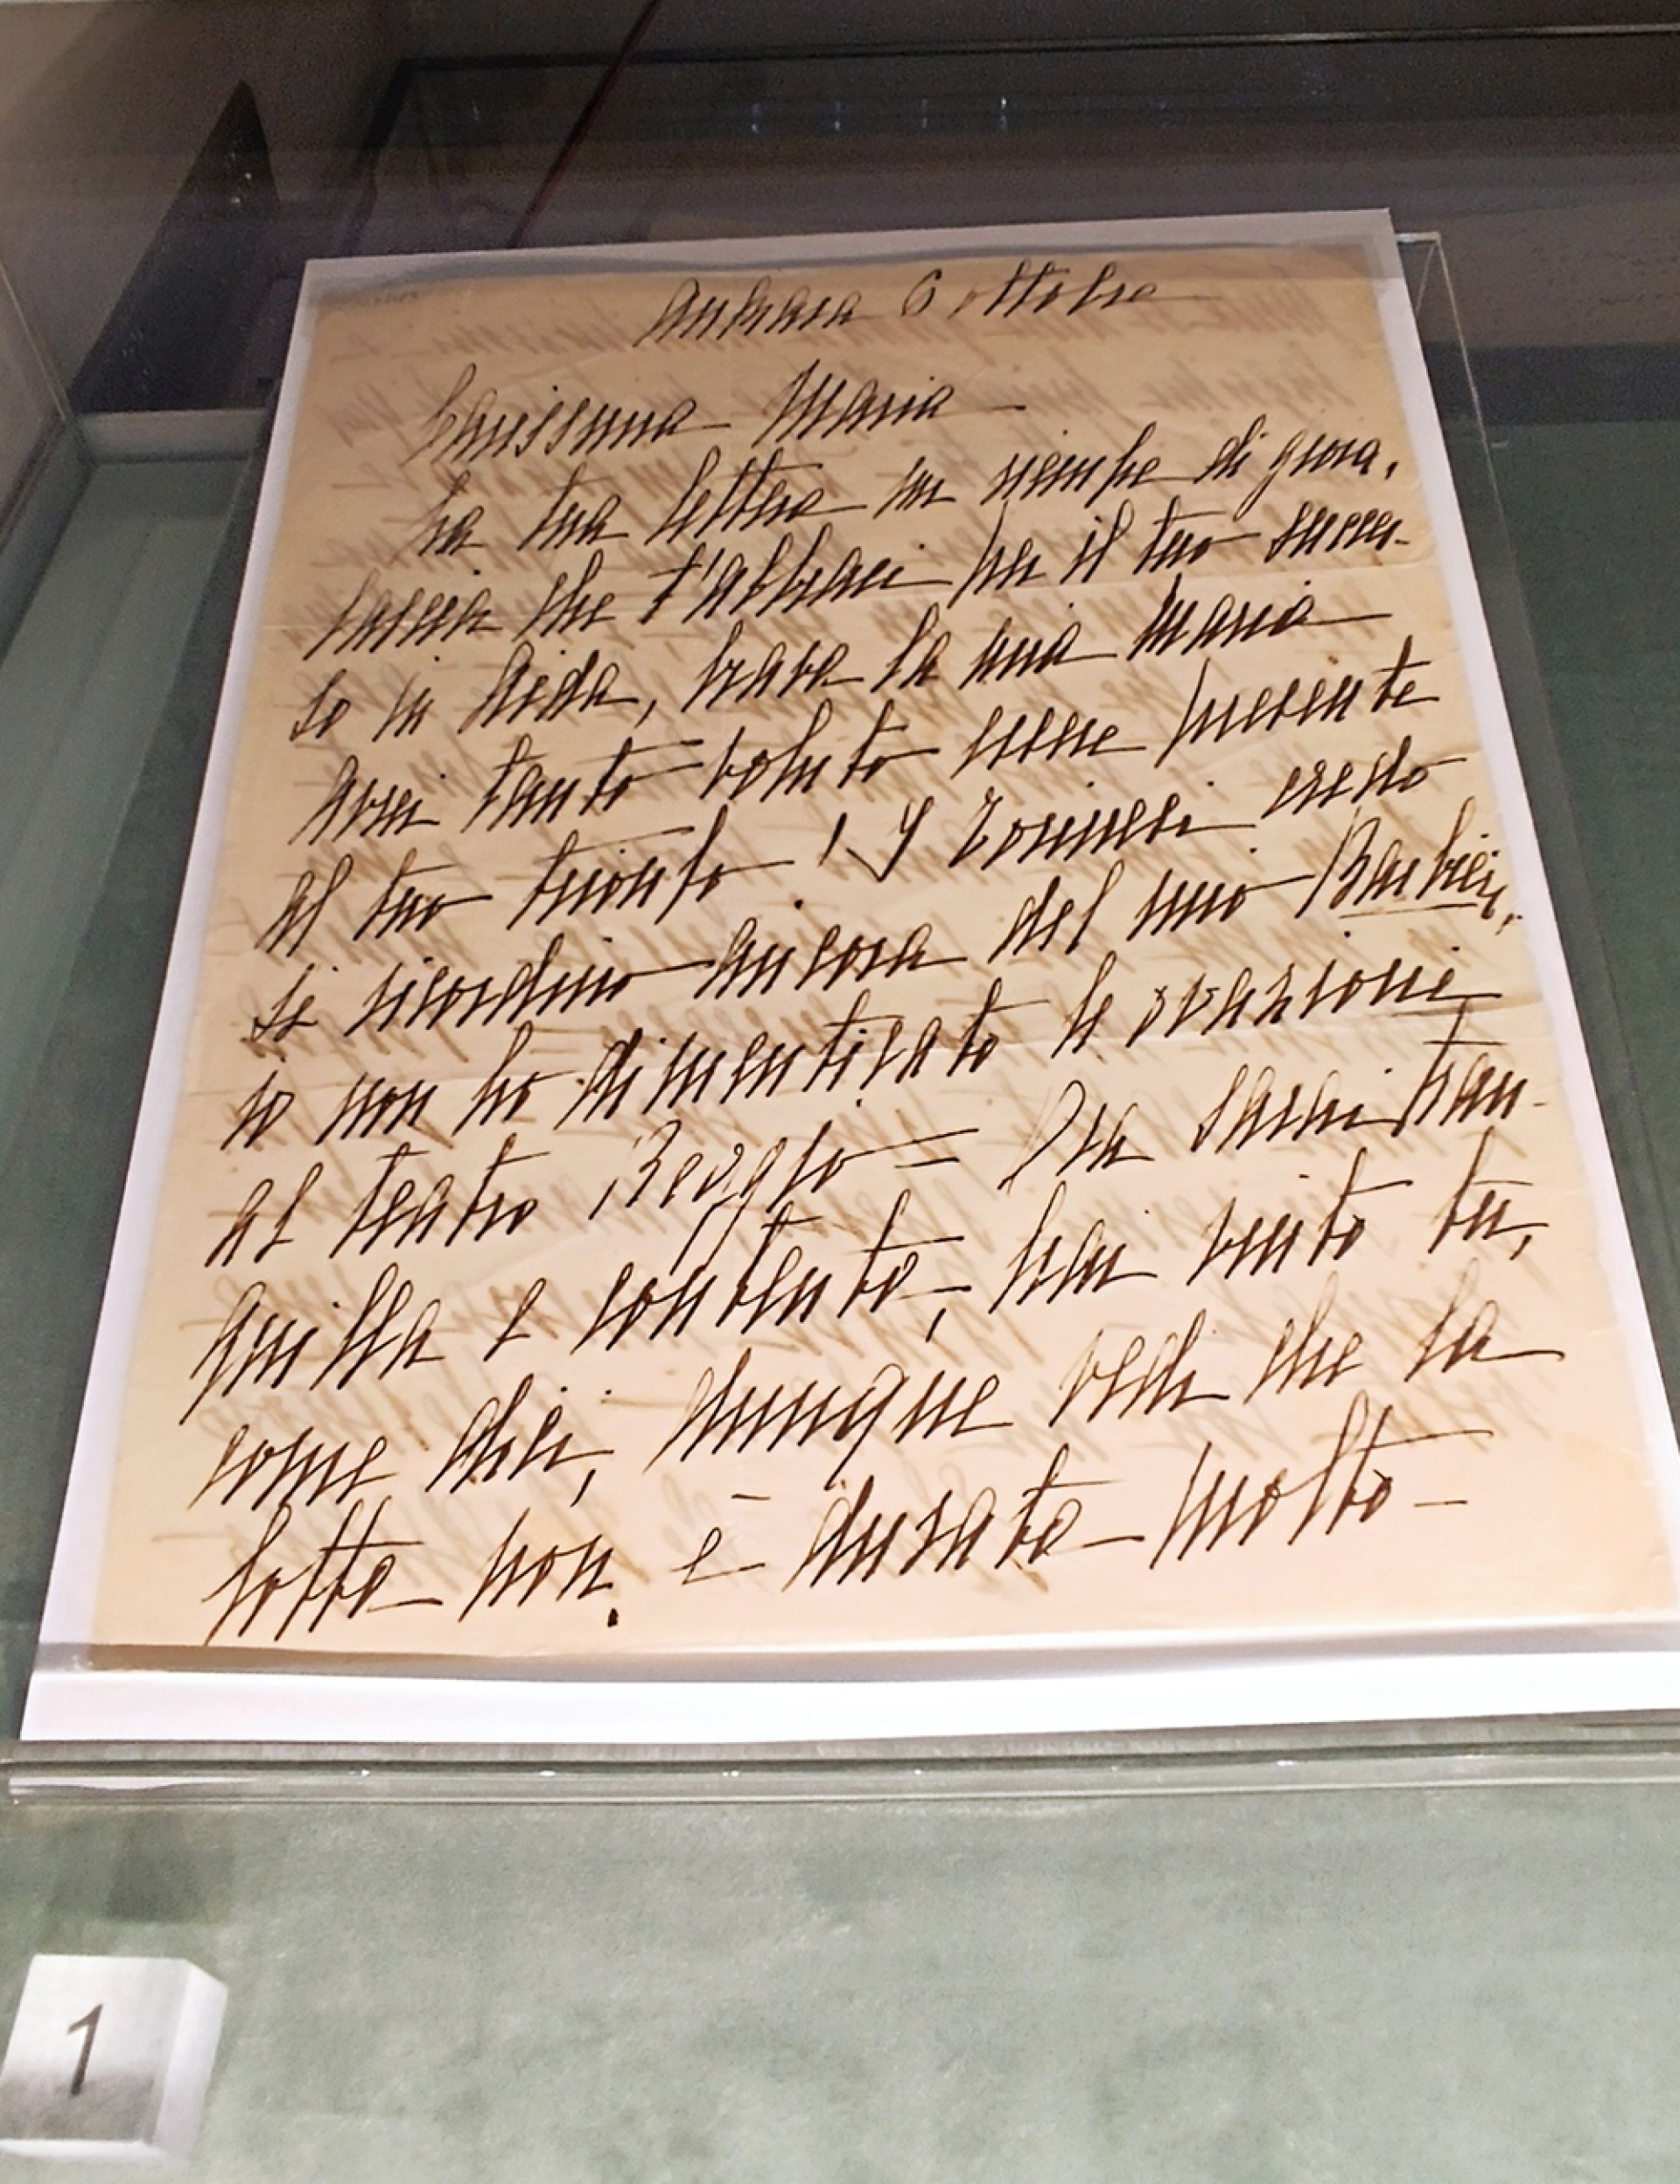 Ankara 6 ottobre
Carissima Maria -
La tua lettera mi riempe di gioia,
lascia che t'abbracci per il tuo succes-
so in Aida, brava la mia Maria
avrei tanto voluto essere presente
al tuo trionfo! I Torinesi credo
si ricordino ancora del mio Barbiere,
io non ho dimenticato le ovazioni
al teatro Reggio = Ora sarai tran-
quilla e contenta, hai vinto tu,
come dici, dunque vedi che la
lotta non è durata molto -
1